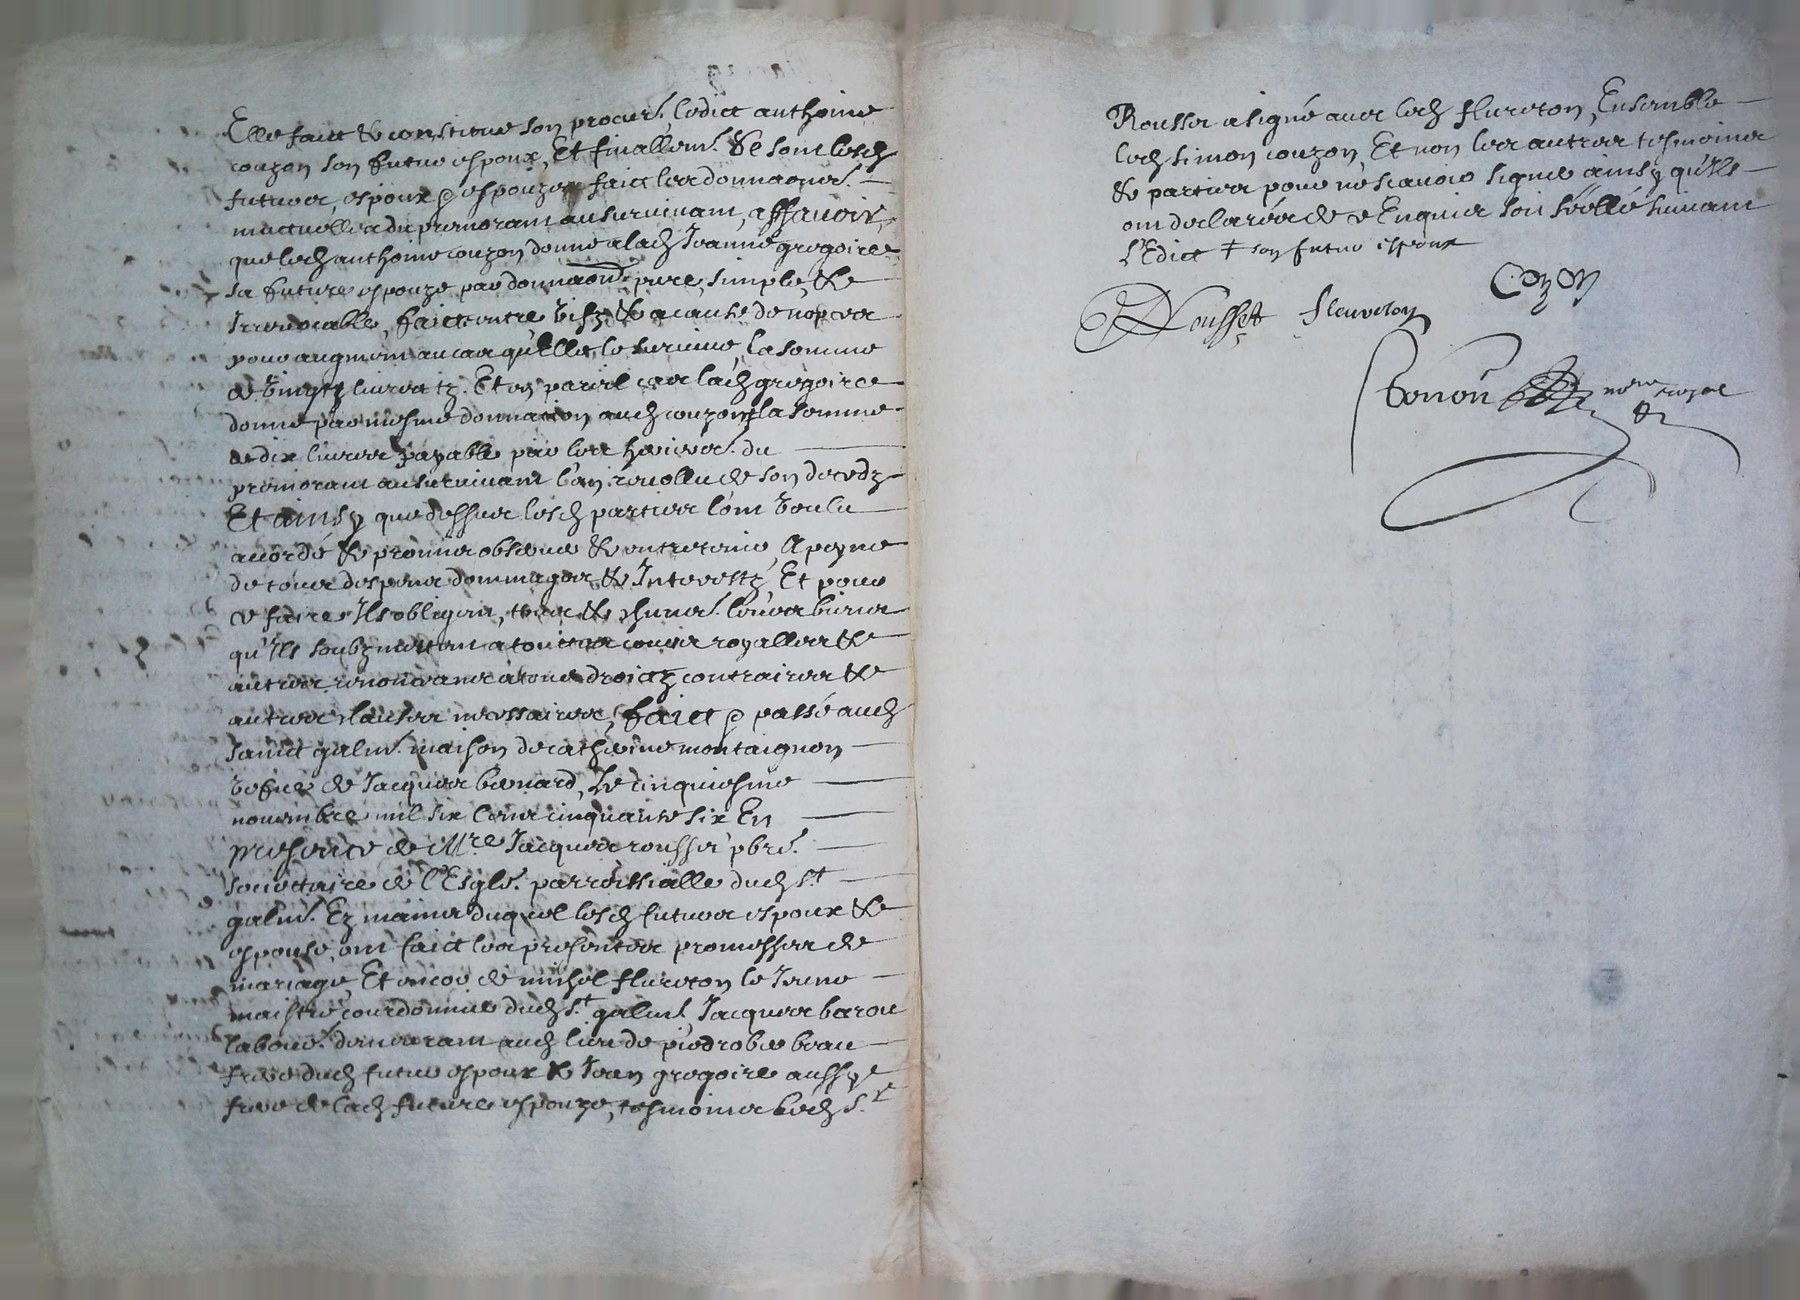 Elle faict & constitue son procur.r ledict anthoine
couzon son futur espoux, Et finallem.t & se sont lesd
futures, espoux & espouze faict les donnaon.s
mutuelles du premorant au survivant, assavoir,
que led anthoine couzon donne a lad Jeanne gregoire
sa future espouze par donnaon pure, simple, &
Irrevocable, faicte entre vifz & a cause de nopces
pour augment au cas qu'Elle le survive, la somme
de vingtz livres tz. Et en pareil cas lad gregoire
donne par mesme donnation aud couzon la somme
de dix livres payable par les heretiers. du
premorant au survivant l'an revollu de son decedz
Et ainsy que dessus lesd parties l'ont voulu
accordé & promis observer & entretenir, A peyne
de tous despens dommages & Interestz, Et pour
ce faire Ilz obligent, tous & chuns. leurs biens
qu'Ilz soubzmettent a touttes cours royalles &
autres renonceans a tous droictz contraires &
autres clauses necessaires, faict & passé aud
sainct galm.r maison de catherine montaignon
vefve de Jacques benard, Le cinquiesme
novembre mil six Cens cinquante six En
presence de M.re Jacques rousset pbre.
societaire de l'Esgle. parroissialle dud S.t
galm.r Ez mains duquel lesd futures espoux &
espouse, ont faict les presentes promesses de
mariage, Et encor de michel flureton le Jeune
maistre courdonnier dud S.t galm.r, Jacques barou
labour.r demeurant aud lieu de
frere dud futur espoux & Jean gregoire aussy
frere de lad future espouze, tesmoins led S.r
Rousset a signé avec led flureton, Ensemble
led simon couzon, Et non les autres tesmoins
& parties pour ne scavoir signer ainsy qu'Ilz
ont declarés de ce Enquis soit séellé suivant
l'Edict ‡ son futur espoux
Cozon
Rousset fleureton
no.re royal